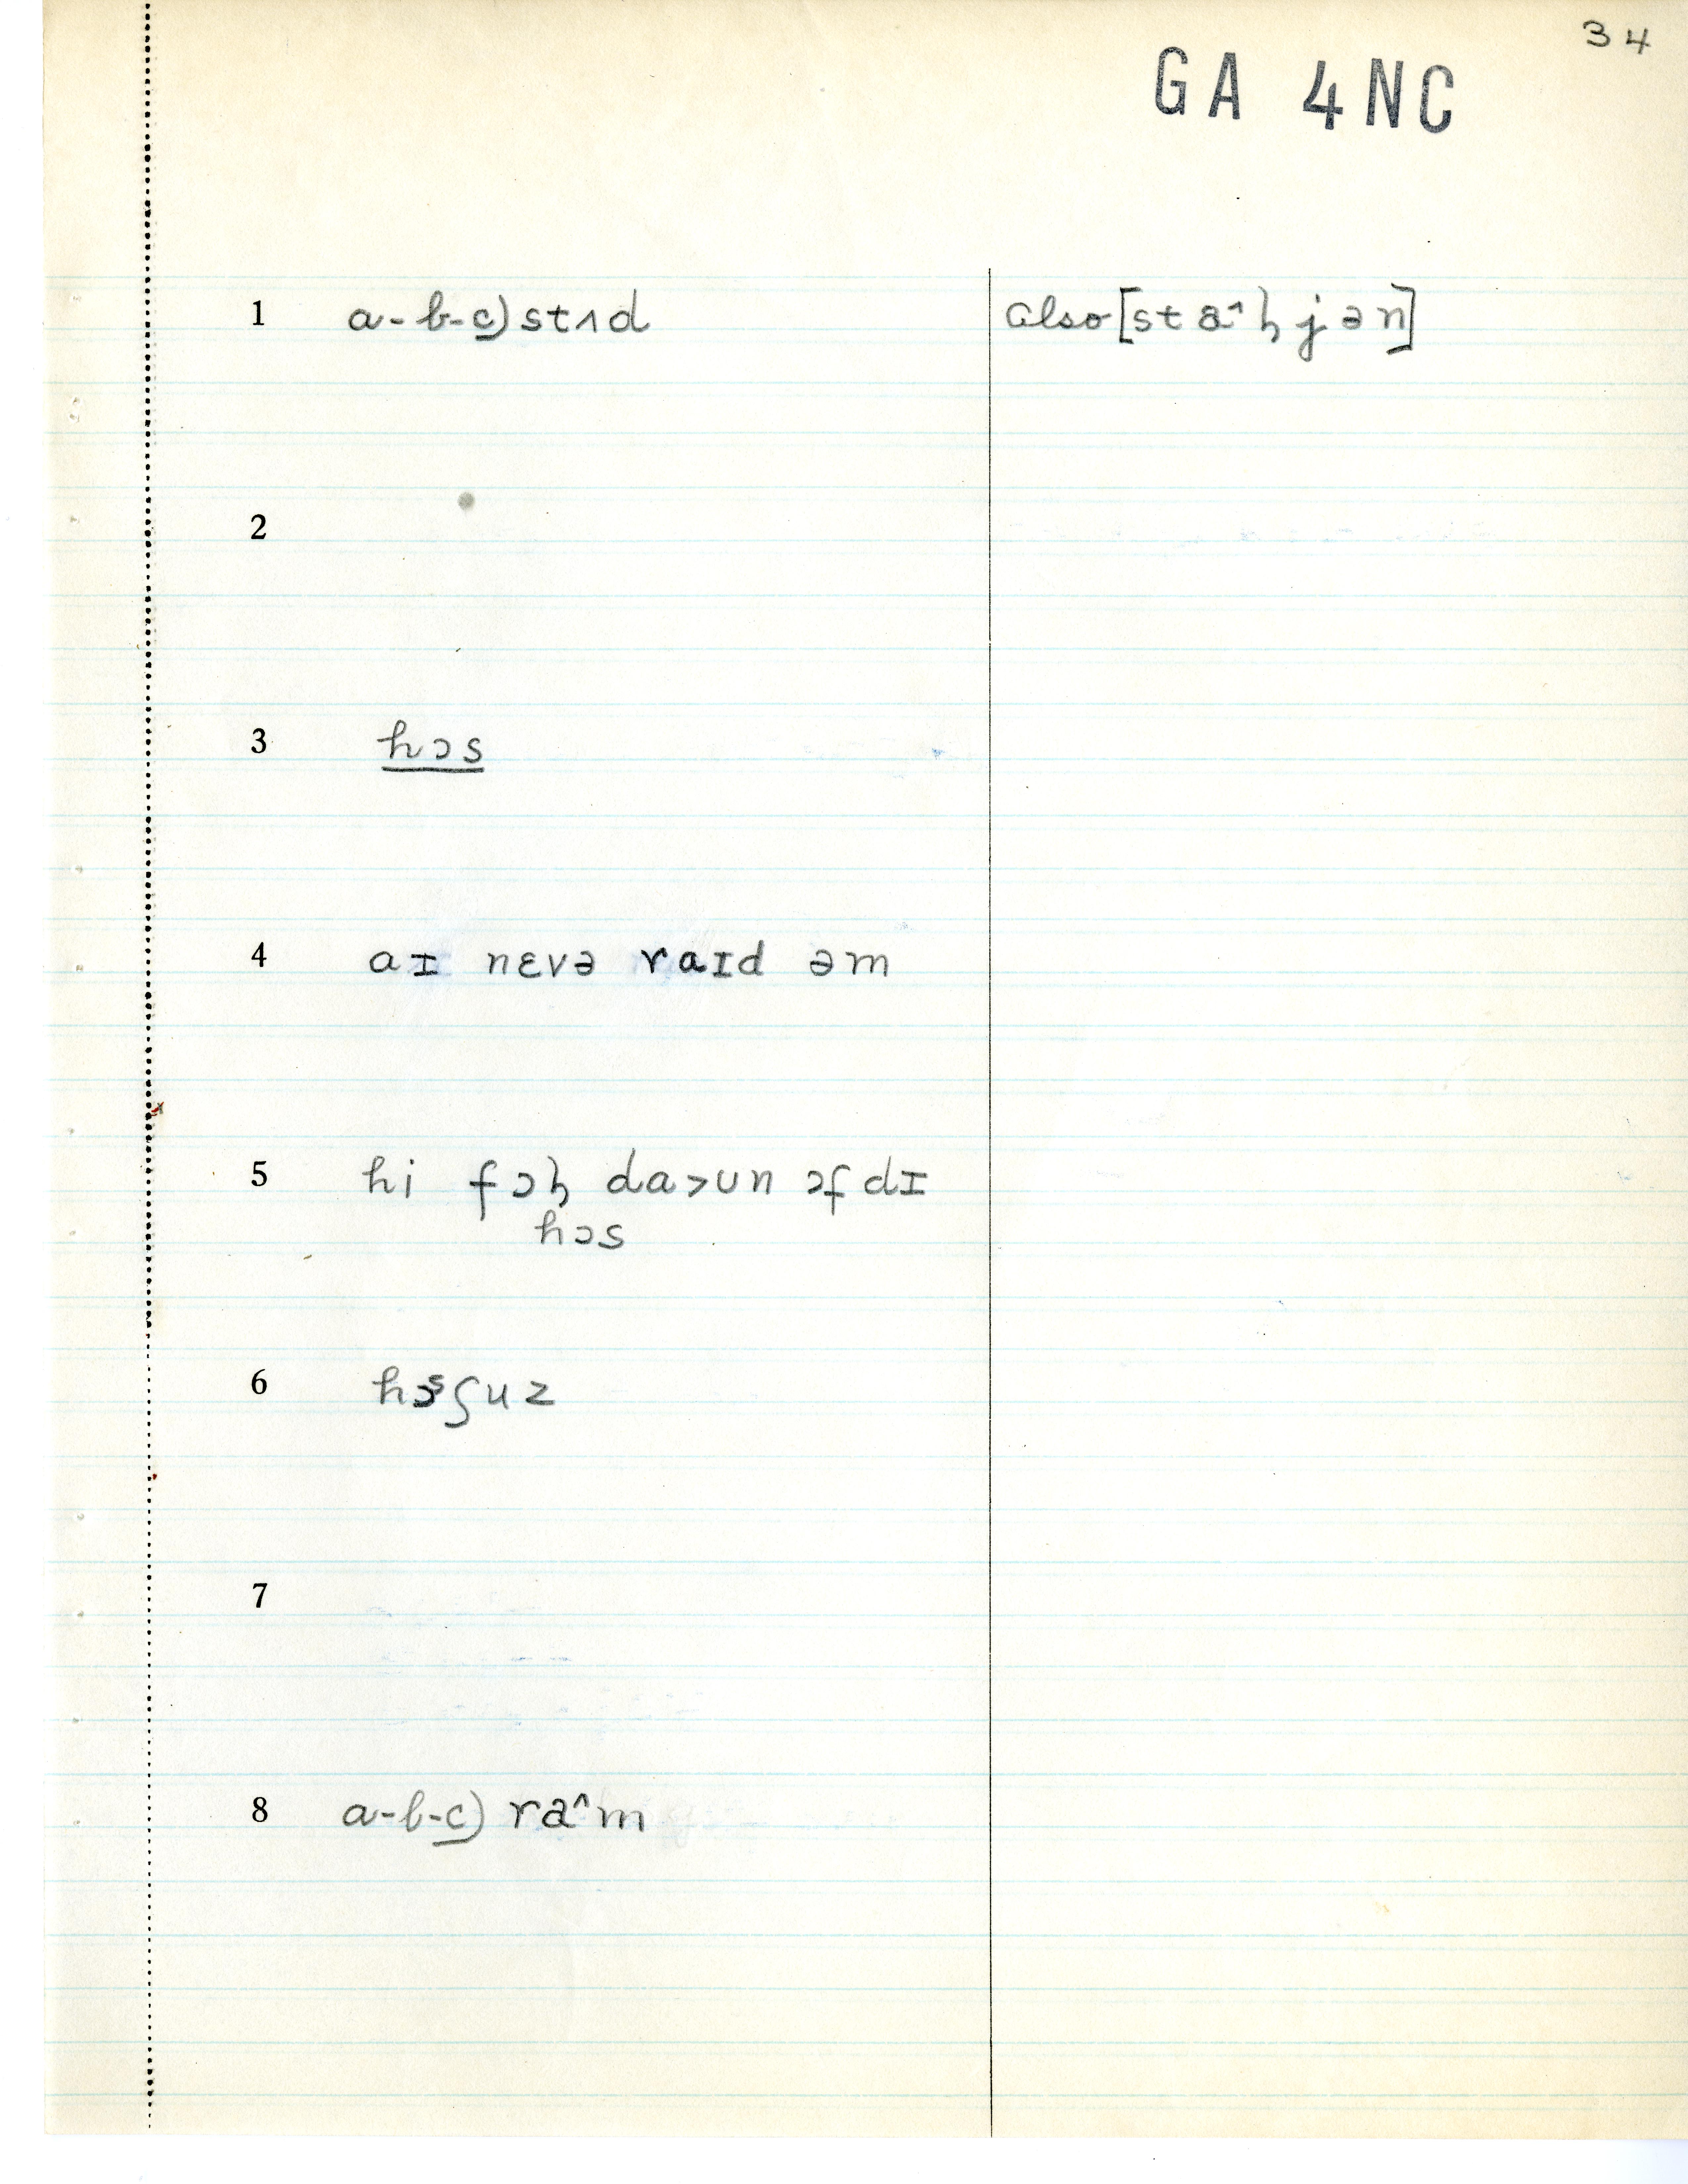 34
GA 4NC
1 a-b-c) stʌd also [sta^ꞎjən]
2
3 hɔs
4 aɪ nɛvə raɪd əm
5 hi fɔꞎ da>ʊn ɔf dɪ
hɔs
6 hɔˢʃuz
7
8 a-b-c) ra^m